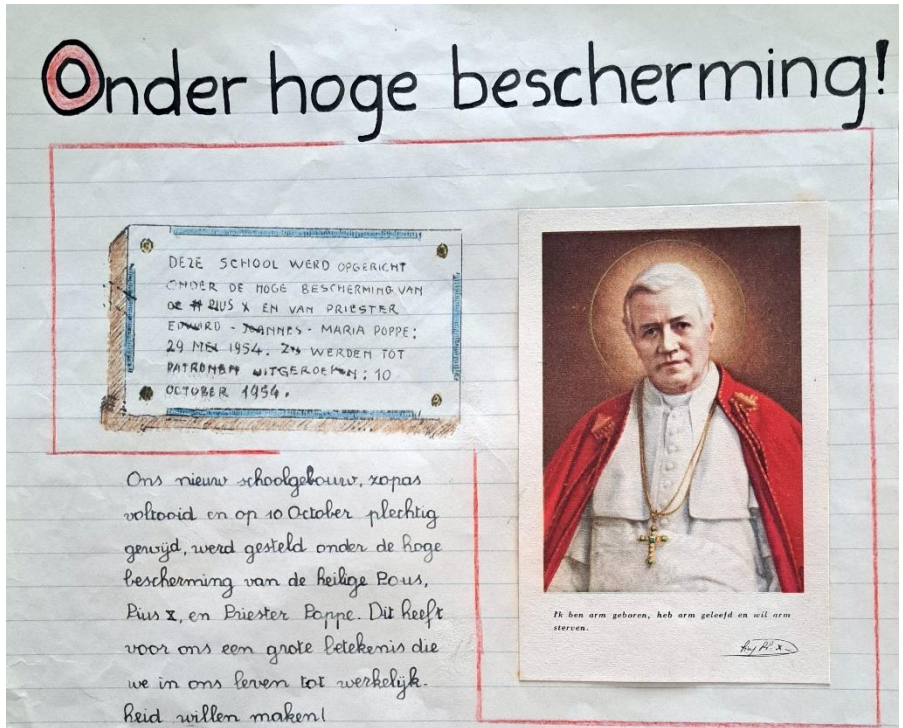 Onder hoge bescherming!
DEZE SCHOOL WERD OPGERICHT
ONDER DE HOGE BESCHERMING VAN
DE H PIUS X EN VAN PRIESTER
EDWARD - JOANNES - MARIA POPPE:
29 MEI 1954. ZIJ WERDEN TOT
PATRONEN UITGEROEPEN: 10
OCTOBER 1954.
Ons nieuw schoolgebouw, zopas
voltooid en op 10 October plechtig
gewijd, werd gesteld onder de hoge
bescherming van de heilige Paus,
Pius X, en Priester Poppe. Dit heeft
voor ons een grote betekenis die
we in ons leven tot werkelijk-
heid willen maken!
Ik ben arm geboren, heb arm geleefd en wil arm
sterven.